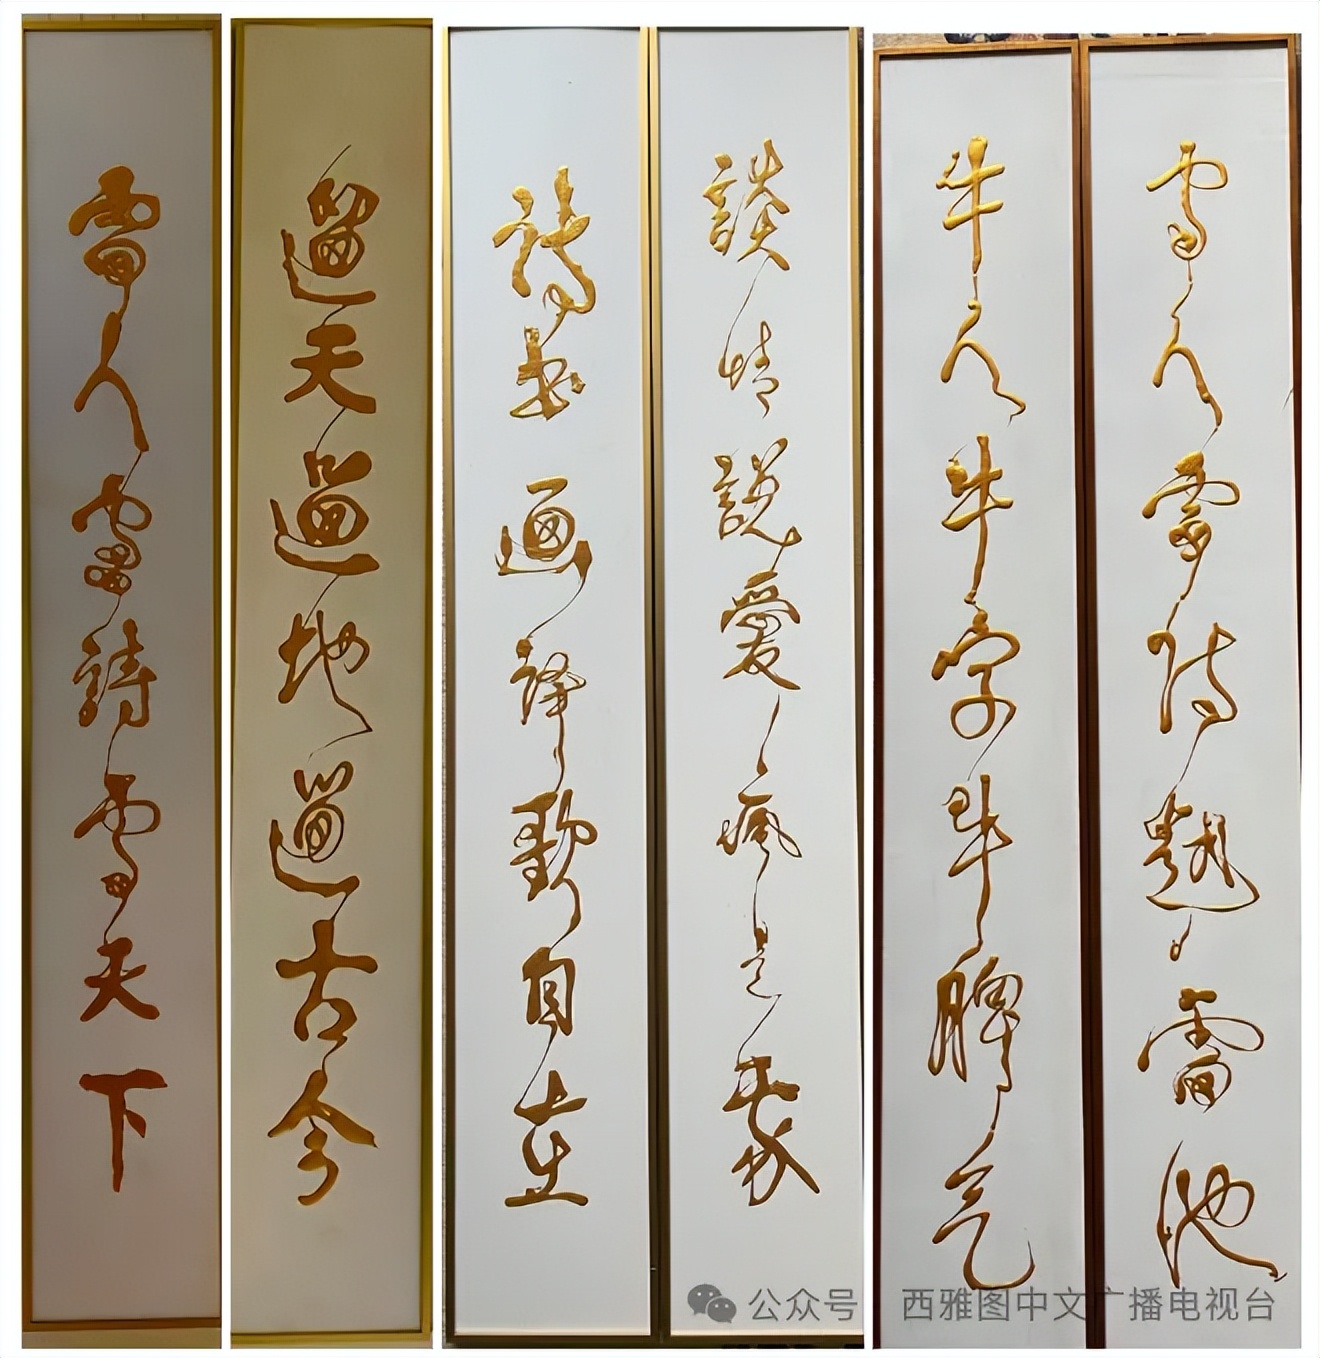 雷人雷詩雷天下
遛天遛地遛古今
詩書画譯歌自在
談情說愛瘋是
牛人牛字牛脾气
雷人雷诗越雷池
公众号 西雅图中文广播电视台